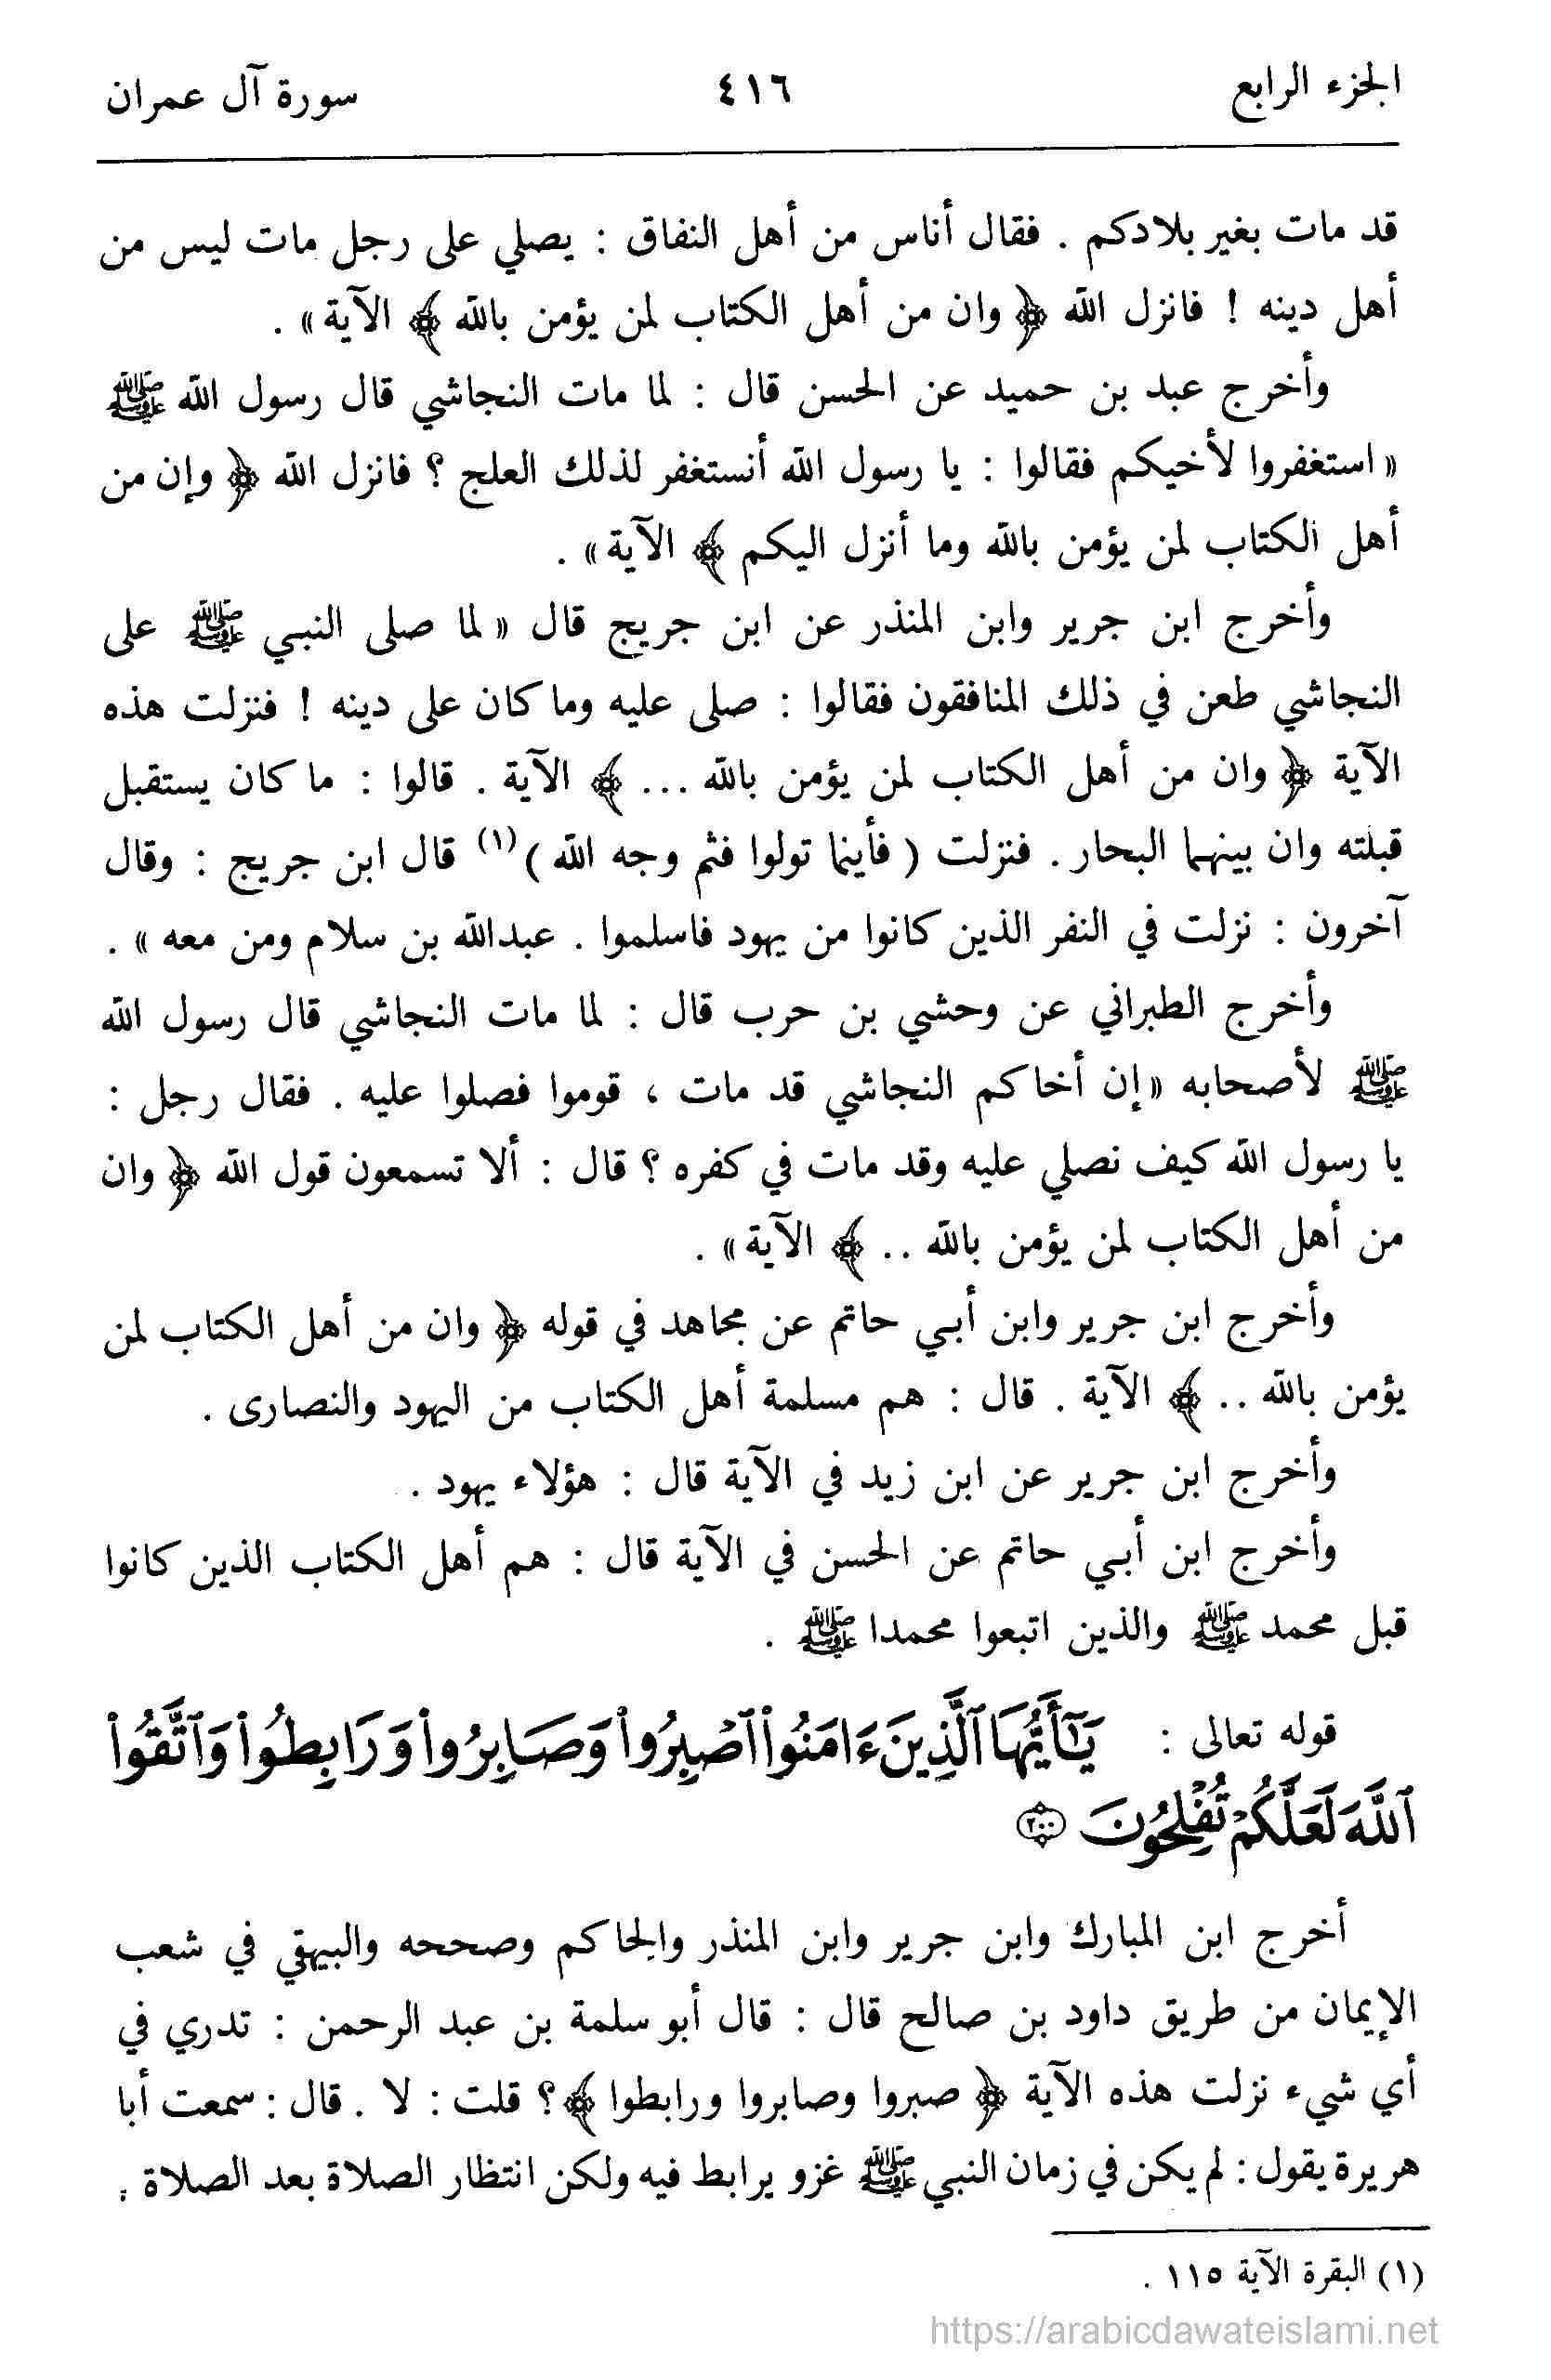 الجزء الرابع ٤١٦ سورة آل عمران
قد مات بغير بلادكم . فقال أناس من أهل النفاق : يصلي على رجل مات ليس من
أهل دينه ! فانزل الله ﴿ وان من أهل الكتاب لمن يؤمن بالله ﴾ الآية » .
وأخرج عبد بن حميد عن الحسن قال : لما مات النجاشي قال رسول الله ﷺ
« استغفروا لأخيكم فقالوا : يا رسول الله أنستغفر لذلك العلج ؟ فانزل الله ﴿ وإن من
أهل الكتاب لمن يؤمن بالله وما أنزل اليكم ﴾ الآية » .
وأخرج ابن جرير وابن المنذر عن ابن جريج قال « لما صلى النبي ﷺ على
النجاشي طعن في ذلك المنافقون فقالوا : صلى عليه وما كان على دينه ! فنزلت هذه
الآية ﴿ وان من أهل الكتاب لمن يؤمن بالله ... ﴾ الآية . قالوا : ما كان يستقبل
قبلته وان بينهما البحار . فنزلت ( فأينما تولوا فثم وجه الله ) (١) قال ابن جريج : وقال
آخرون : نزلت في النفر الذين كانوا من يهود فاسلموا . عبدالله بن سلام ومن معه » .
وأخرج الطبراني عن وحشي بن حرب قال : لما مات النجاشي قال رسول الله
ﷺ لأصحابه « إن أخاكم النجاشي قد مات ، قوموا فصلوا عليه . فقال رجل :
يا رسول الله كيف نصلي عليه وقد مات في كفره ؟ قال : ألا تسمعون قول الله ﴿ وان
من أهل الكتاب لمن يؤمن بالله .. ﴾ الآية » .
وأخرج ابن جرير وابن أبي حاتم عن مجاهد في قوله ﴿ وان من أهل الكتاب لمن
يؤمن بالله .. ﴾ الآية . قال : هم مسلمة أهل الكتاب من اليهود والنصارى .
وأخرج ابن جرير عن ابن زيد في الآية قال : هؤلاء يهود .
وأخرج ابن أبي حاتم عن الحسن في الآية قال : هم أهل الكتاب الذين كانوا
قبل محمد ﷺ والذين اتبعوا محمدا ﷺ .
قوله تعالى : يَٰٓأَيُّهَا ٱلَّذِينَ ءَامَنُواْ ٱصْبِرُواْ وَصَابِرُواْ وَرَابِطُواْ وَٱتَّقُواْ
ٱللَّهَ لَعَلَّكُمْ تُفْلِحُونَ ۝٢٠٠
أخرج ابن المبارك وابن جرير وابن المنذر والحاكم وصححه والبيهقي في شعب
الإيمان من طريق داود بن صالح قال : قال أبو سلمة بن عبد الرحمن : تدري في
أي شيء نزلت هذه الآية ﴿ صبروا وصابروا ورابطوا ﴾ ؟ قلت : لا . قال : سمعت أبا
هريرة يقول : لم يكن في زمان النبي ﷺ غزو يرابط فيه ولكن انتظار الصلاة بعد الصلاة .
(١) البقرة الآية ١١٥ .
https://arabicdawateislami.net